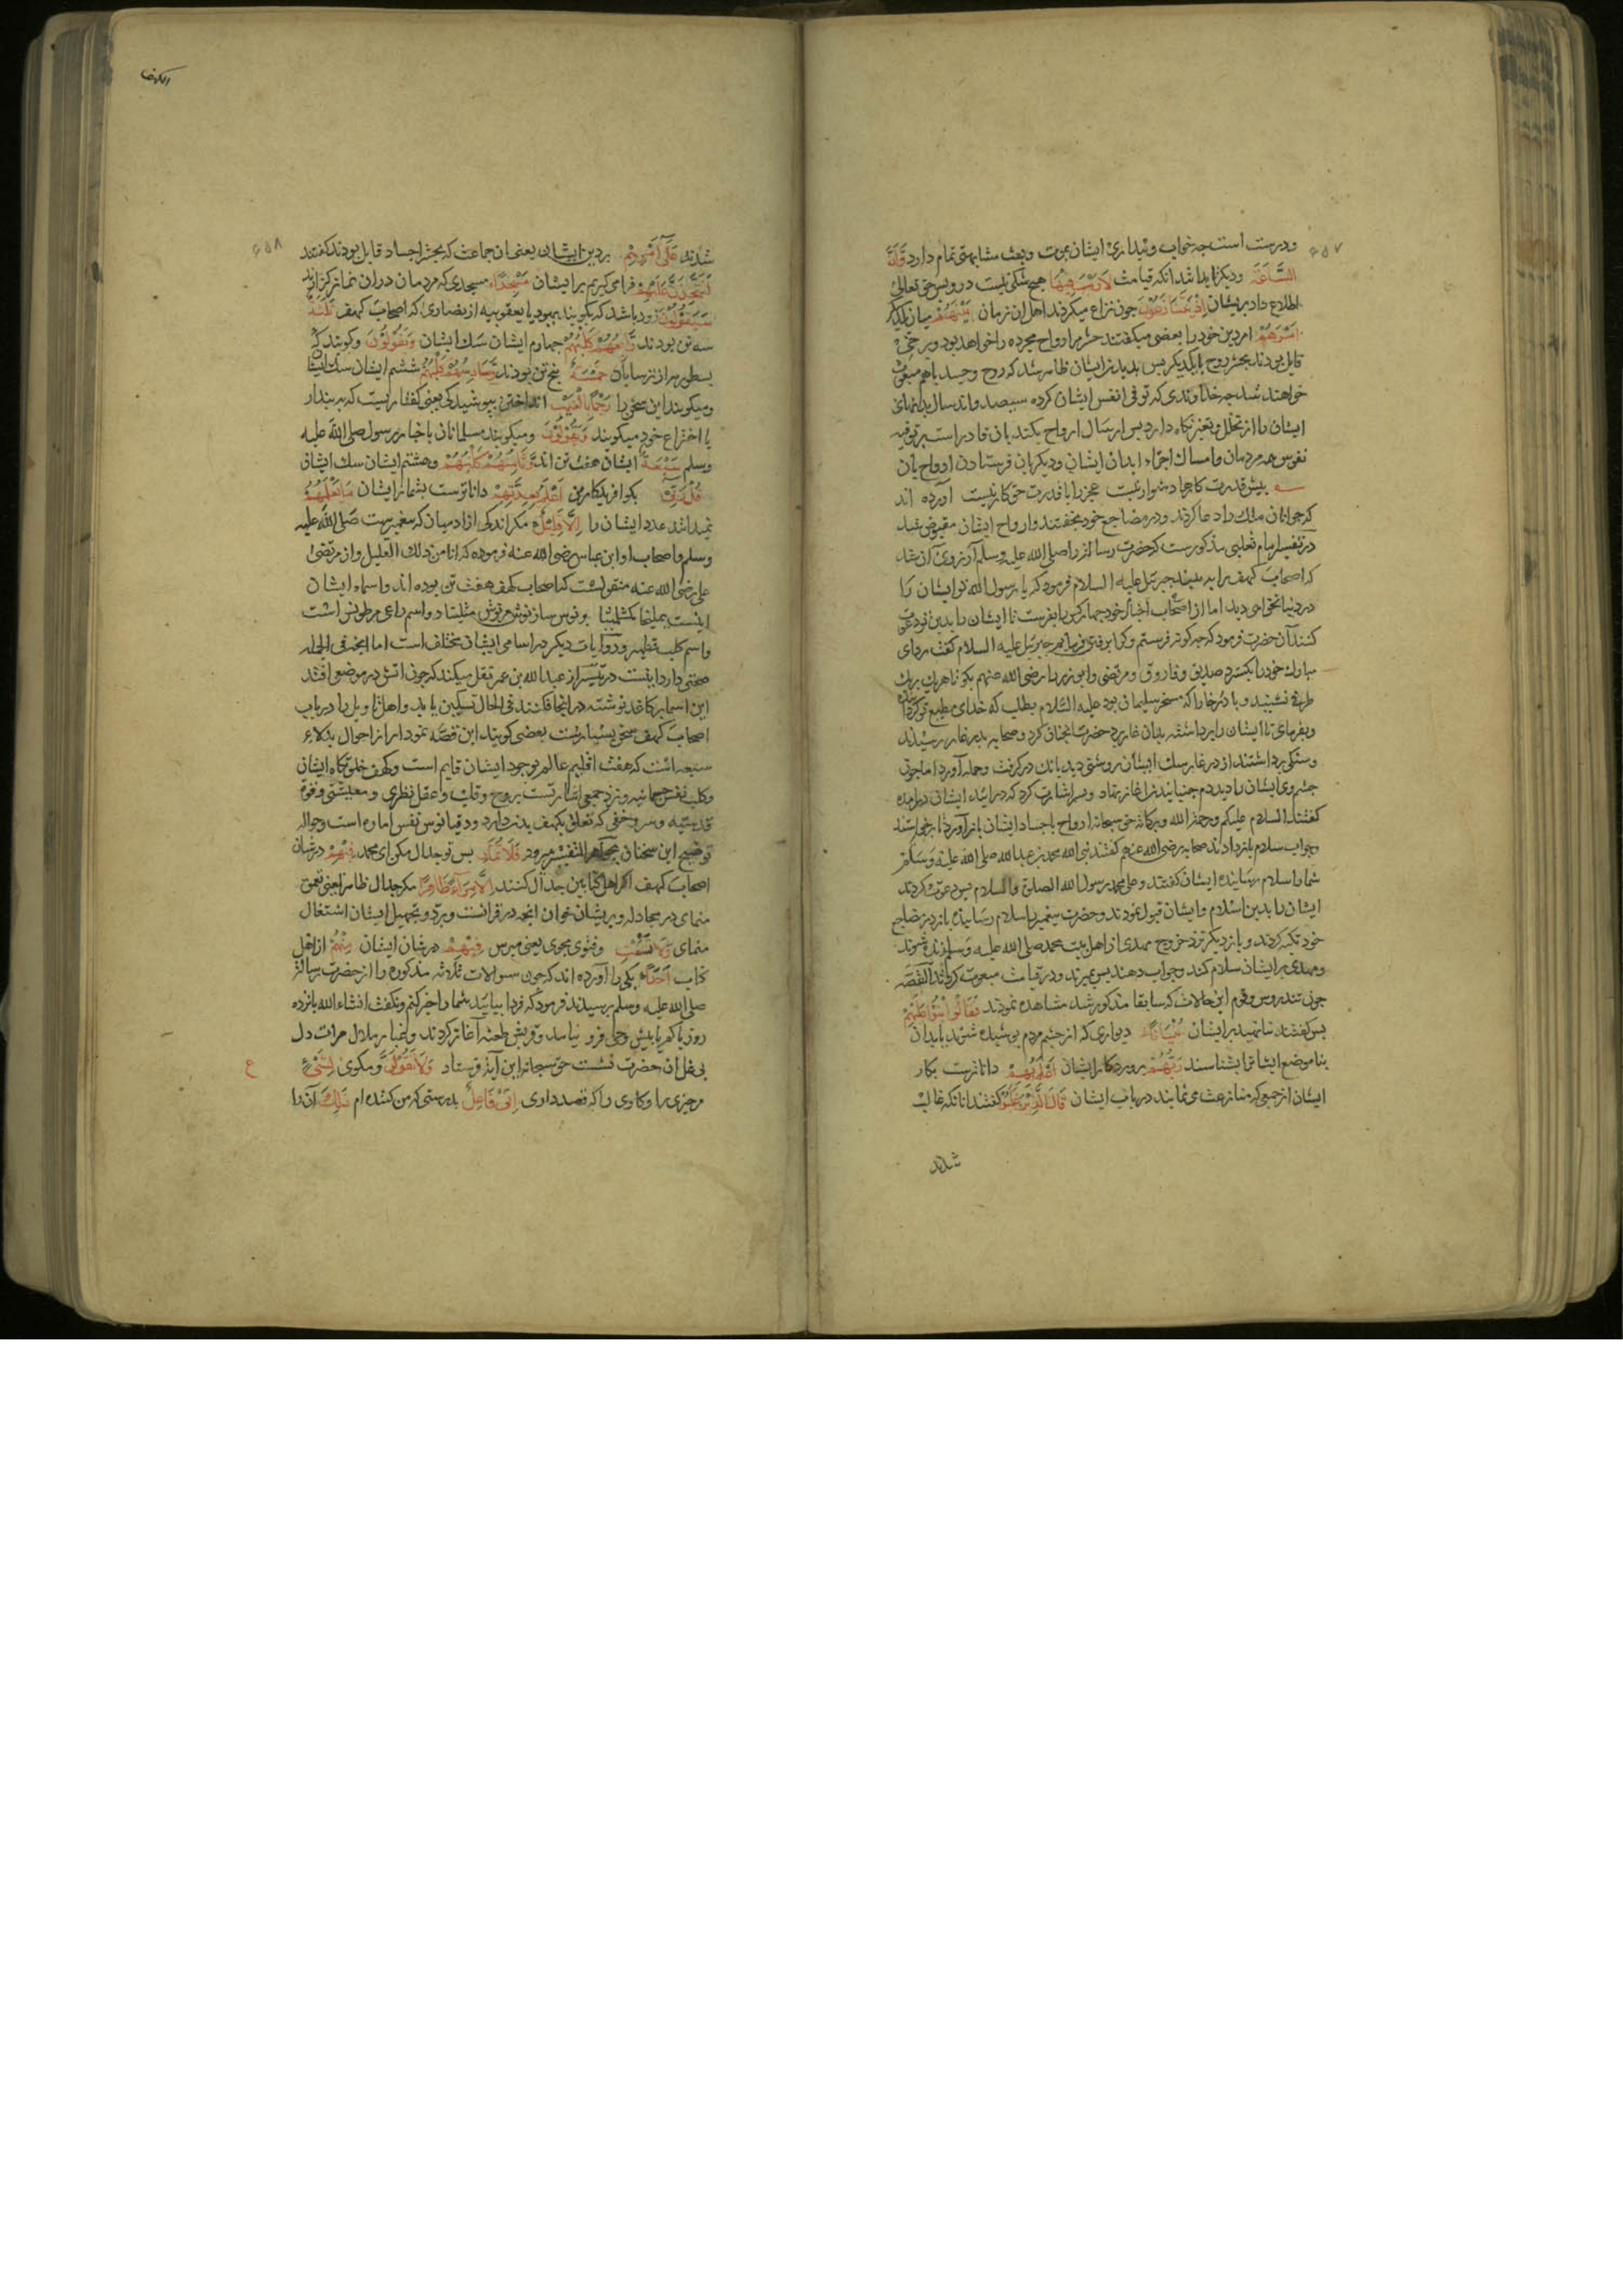 ۶۵۷
ودرست است چه خواب و بیداری ایشان بموت و بعث مشابهتی تمام دارد وَاَنَّ
السَّاعَةَ ودیگر بدانند آنکه قیامت لَارَیْبَ فِیْهَا هیچ شکی نیست در وپس حق تعالی
اطلاع داد بریشان اِذْ یَتَنَازَعُوْنَ چون نزاع میکردند اهل آن زمان بَیْنَهُمْ میان یکدیگر
اَمْرَهُمْ امر دین خود را بعضی میگفتند حشر مر ارواح مجرده را خواهد بود و برخی
قایل بودند بحشر روح با یکدیگر پس بدیدن ایشان ظاهر شد که روح و جسد باهم مبعوث
خواهند شد چه خداوندی که توفی انفس ایشان کرده سیصد و اند سال بدنهای
ایشان را از تحلل و تغیر نگاه دارد پس ارسال ارواح بکند بان قادر است بر توفیه
نفوس همه مردمان وامساک اجزاء ابدان ایشان و دیگر باره فرستادن ارواح بآن
پیش قدرت کارها دشوار نیست عجز را با قدرت حق کار نیست آورده اند
که جوانان ملک را دعا کردند و در مضاجع خود بخفتند وارواح ایشان مقبوض شد
در تفسیر امام ثعلبی مذکورست که حضرت رسالت را صلی الله علیه وسلم آرزوی آن شد
که اصحاب کهف را به بیند جبرئیل علیه السلام فرمود که یا رسول الله تو ایشان را
در دنیا نخواهی دید اما از اصحاب اخیار خود چهار کس را بفرست تا ایشان را بدین تو دعوت
کنند آن حضرت فرمود که چه گونه فرستم و کرا برفتن فرمایم جبرئیل علیه السلام گفت ردای
مبارک خود را بگستر و صدیق و فاروق و مرتضی و ابوذر را رضی الله عنهم بگو تا هر یک بر یک
طرف نشینند و باد رخا را که مسخر سلیمان بود علیه السلام بطلب که خدای مطیع تو گرداند
وبفرمای تا ایشان را برداشته بدان غار برد حضرت آنچنان کرد و صحابه بدر غار رسیدند
وسنگی برداشتند از در غار سگ ایشان روشنی دید بانگ درگرفت و حمله آورد اما چون
چشم وی ایشان را دید دم جنبانیدن آغاز نهاد و بسر اشارت کرد که درآئید ایشان درآمده
گفتند السلام علیکم ورحمة الله وبرکاته حق سبحانه ارواح باجساد ایشان باز آورد تا برخاستند
وجواب سلام باز دادند صحابه رضی الله عنهم گفتند نبی الله محمد بن عبدالله صلی الله علیه وسلم
شما را سلام رسانیده ایشان گفتند وعلی محمد رسول الله الصلوة والسلام پس دعوت کردند
ایشان را بدین اسلام وایشان قبول نمودند و حضرت پیغمبر را سلام رسانیده باز در مضاجع
خود تکیه کردند و بار دیگر نزد خروج مهدی از اهل بیت محمد صلی الله علیه وسلم زنده شوند
ومهدی بر ایشان سلام کند وجواب دهند پس بمیرند و در قیامت مبعوث گردانند القصه
چون تندروس وقوم این حالات که سابقا مذکور شد مشاهده نمودند فَقَالُوا ابْنُوْا عَلَیْهِمْ
پس گفتند بنا نهید بر ایشان بُنْیَانًا دیواری که از چشم مردم پوشیده شوند یا بدان
بنا موضع ایشان را بشناسند رَبُّهُمْ پروردگار ایشان اَعْلَمُ بِهِمْ داناترست بکار
ایشان از جمعی که منازعت می نمایند در باب ایشان قَالَ الَّذِیْنَ غَلَبُوْا گفتند آنانکه غالب
شدند
الکهف
۶۵۸
شدند عَلٰی اَمْرِهِمْ بر دین ایشان یعنی آن جماعت که بحشر اجساد قایل بودند گفتند
لَنَتَّخِذَنَّ عَلَیْهِمْ فرا می گیریم بر ایشان مَسْجِدًا مسجدی که مردمان در آن نماز گزارند
سَیَقُوْلُوْنَ زود باشد که گویند یهود یا یعقوبیه از نصاری که اصحاب کهف ثَلٰثَةٌ
سه تن بودند رَابِعُهُمْ کَلْبُهُمْ چهارم ایشان سگ ایشان وَیَقُوْلُوْنَ وگویند که
نسطوریه از ترسایان خَمْسَةٌ پنج تن بودند سَادِسُهُمْ کَلْبُهُمْ ششم ایشان سگ ایشان
ومیگویند این سخن را رَجْمًا بِالْغَیْبِ انداختن بپوشیدگی یعنی گفتاریست که به پندار
یا اختراع خود میگویند وَیَقُوْلُوْنَ ومیگویند مسلمانان باخبار رسول صلی الله علیه
وسلم سَبْعَةٌ ایشان هفت تن اند وَثَامِنُهُمْ کَلْبُهُمْ وهشتم ایشان سگ ایشان
قُلْ رَبِّیْ بگو آفریدگار من اَعْلَمُ بِعِدَّتِهِمْ داناترست بشمار ایشان مَا یَعْلَمُهُمْ
نمیدانند عدد ایشان را اِلَّا قَلِیْلٌ مگر اندکی از آدمیان که پیغمبرست صلی الله علیه
وسلم واصحاب او ابن عباس رضی الله عنه فرموده که انا من ذلک القلیل واز مرتضی
علی رضی الله عنه منقولست که اصحاب کهف هفت تن بوده اند واسماء ایشان
اینست یملیخا مکشلینا برنوس سازنوش مرنوش مثلینا واسم راعی مرطونس است
واسم کلب قطمیر و روایات دیگر در اسامی ایشان مختلف است اما آنچه فی الجمله
صحتی دارد اینست در تیسیر از عبدالله بن عمر نقل میکند که چون آتش در موضعی افتد
این اسما بر کاغذ نوشته در آنجا فکنند فی الحال تسکین یابد واهل تاویل را در باب
اصحاب کهف سخن بسیارست بعضی گویند این قصه نمودار از احوال بدلاء
سبعه است که هفت اقلیم عالم بوجود ایشان قایم است وکهف خلوتگاه ایشان
وکلب نفس حیوانیه ونزد جمعی اشارتست بروح وقلب وعقل نظری و معیشتی وقوة
قدسیه وسر وخفی که تعلق بکهف بدن دارد ودقیانوس نفس اماره است وحواله
توضیح این سخنان بجواهر التفسیر میرود فَلَا تُمَارِ پس تو جدال مکن ای محمد فِیْهِمْ در شان
اصحاب کهف اگر اهل کتاب این جدال کنند اِلَّا مِرَآءً ظَاهِرًا مگر جدال ظاهر یعنی تعمق
منمای در مجادله وبریشان خوان آنچه در قرآنست وبرد وتجهیل ایشان اشتغال
منمای وَلَا تَسْتَفْتِ وفتوی مجوی یعنی مپرس فِیْهِمْ در شان ایشان مِنْهُمْ از اهل
کتاب اَحَدًا یکی را آورده اند که چون سوالات ثلاثه مذکوره را از حضرت رسالت
صلی الله علیه وسلم پرسیدند فرمود که فردا بیائید بشما را خبر کنم ونگفت انشاء الله پانزده
روز یا کم یا بیش وحی فرو نیامد وقریش طعنه آغاز کردند وغبار ملال مرآت دل
بی غل آن حضرت نشست حق سبحانه این آیة فرستاد وَلَا تَقُوْلَنَّ ومگوی لِشَیْءٍ
مر چیزی را وکاری را که قصد داری اِنِّیْ فَاعِلٌ بدرستی که من کننده ام ذٰلِکَ آن را
ع